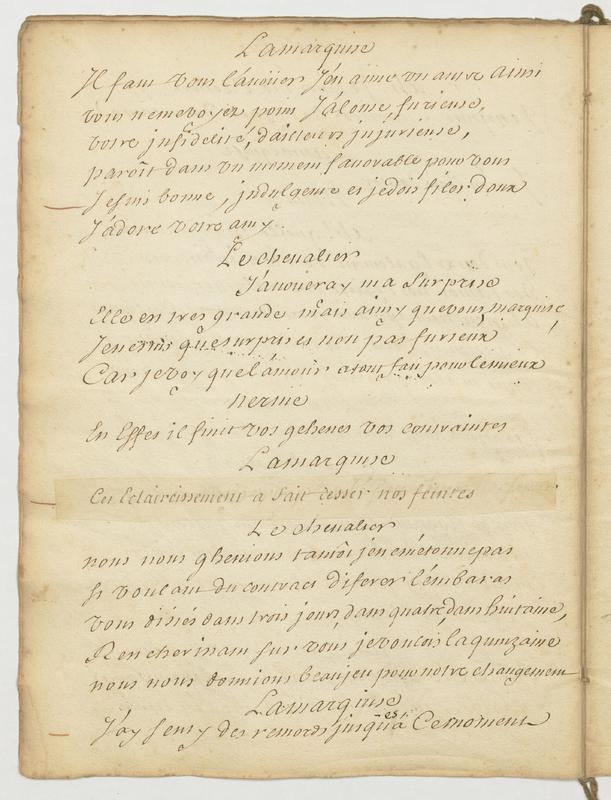 La marquise
Il faut vous l'avoüer J'en aime un autre ainsi
vous ne me voyez point Jalouse, furieuse,
votre infidelité, d'ailleurs injurieuse,
paroît dans un moment favorable pour vous
Je suis bonne, indulgente et je dois filer doux
J'adore votre amy
Le chevalier
J'avoueray ma Surprise
Elle est tres grande mais ainsy que vous, marquise,
Je ne suis que surpris et non pas furieux
Car je voy que l'amour a tout fait pour le mieux
nerine
En Effet il finit vos gehenes vos contraintes
La marquise
Cet Eclaircissement a fait cesser nos feintes
Le chevalier
nous nous ghenions tantôt je n'en étonne pas
Si voulant du contract diferer l'embaras
vous disiés dans trois jours, dans quatre, dans huitaine,
Rencherissant sur vous je voulois la quinzaine
nous nous donnions beau jeu pour notre changement
La marquise
J'ay senty des remords jusqu'a Ce moment